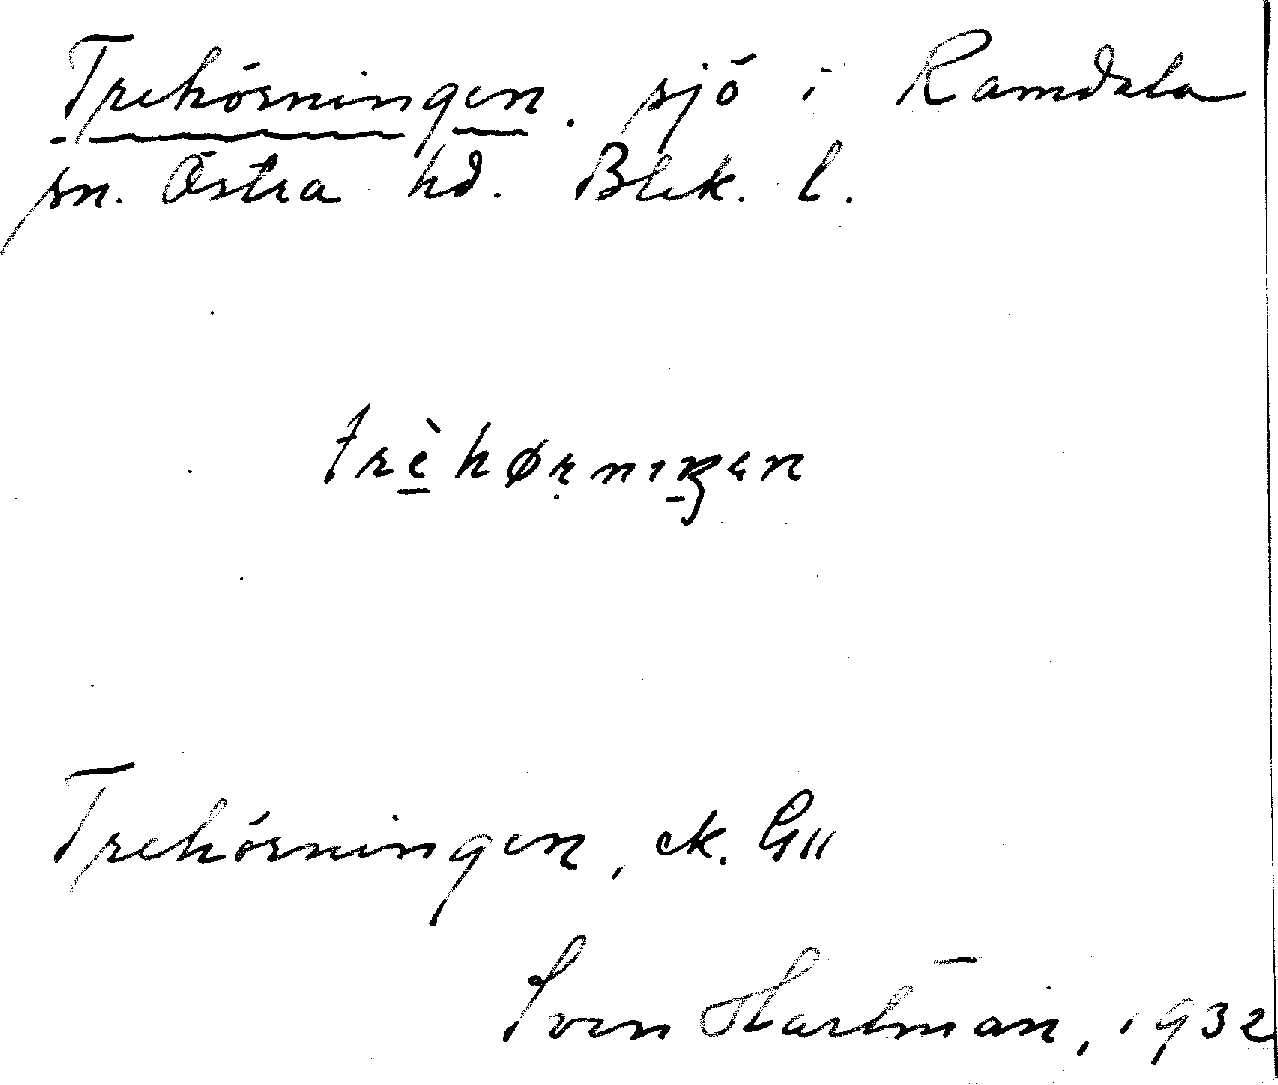 Trehörningen. sjö i Ramdala
sn. Östra hd. Blek. l.
trèhørniŋen
Trehörningen, ek. G11
Sven Hartman, 1932